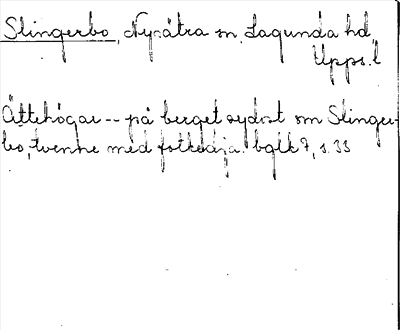 Slingerbo, Nysätra sn, Lagunda hd,
Upps. l
Ättehögar -- på berget sydost om Slinger-
bo, tvenne med fotkedja. bglk 7, s. 33